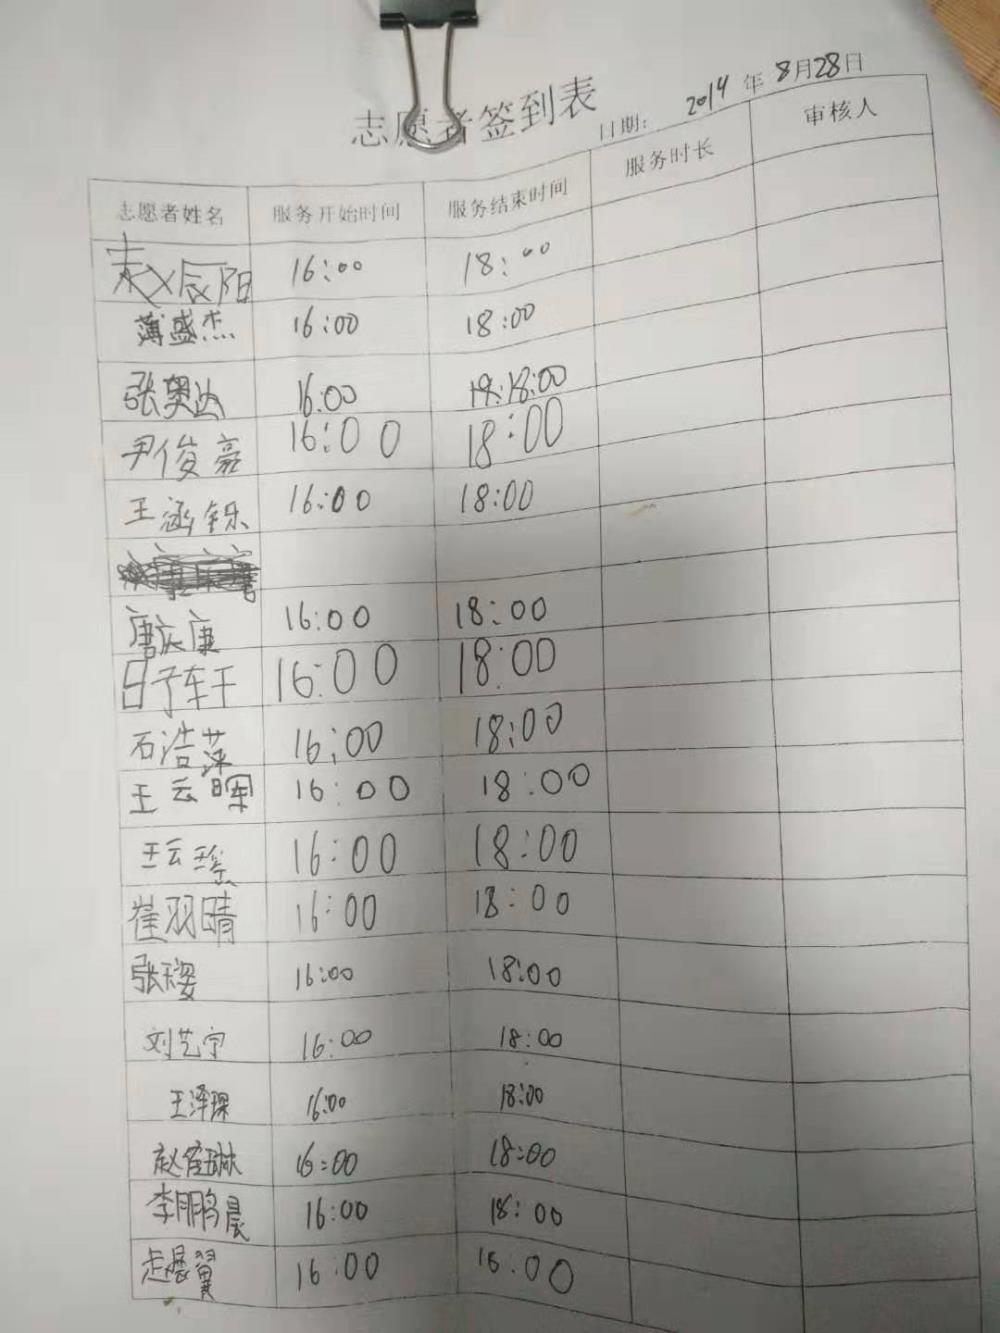 志愿者签到表
日期: 2014 年 8月28日
志愿者姓名 服务开始时间 服务结束时间 服务时长 审核人
赵辰阳 16:00 18:00
薄盛杰 16:00 18:00
张奥达 16:00 18:18:00
尹俊亮 16:00 18:00
王涵铄 16:00 18:00
唐庆康 16:00 18:00
16:00 18:00
石浩萍 16:00 18:00
王云晖 16:00 18:00
王云瑶 16:00 18:00
崔羽晴 16:00 18:00
16:00 18:00
刘艺宁 16:00 18:00
王泽琛 16:00 18:00
16:00 18:00
李鹏晨 16:00 18:00
16:00 16:00